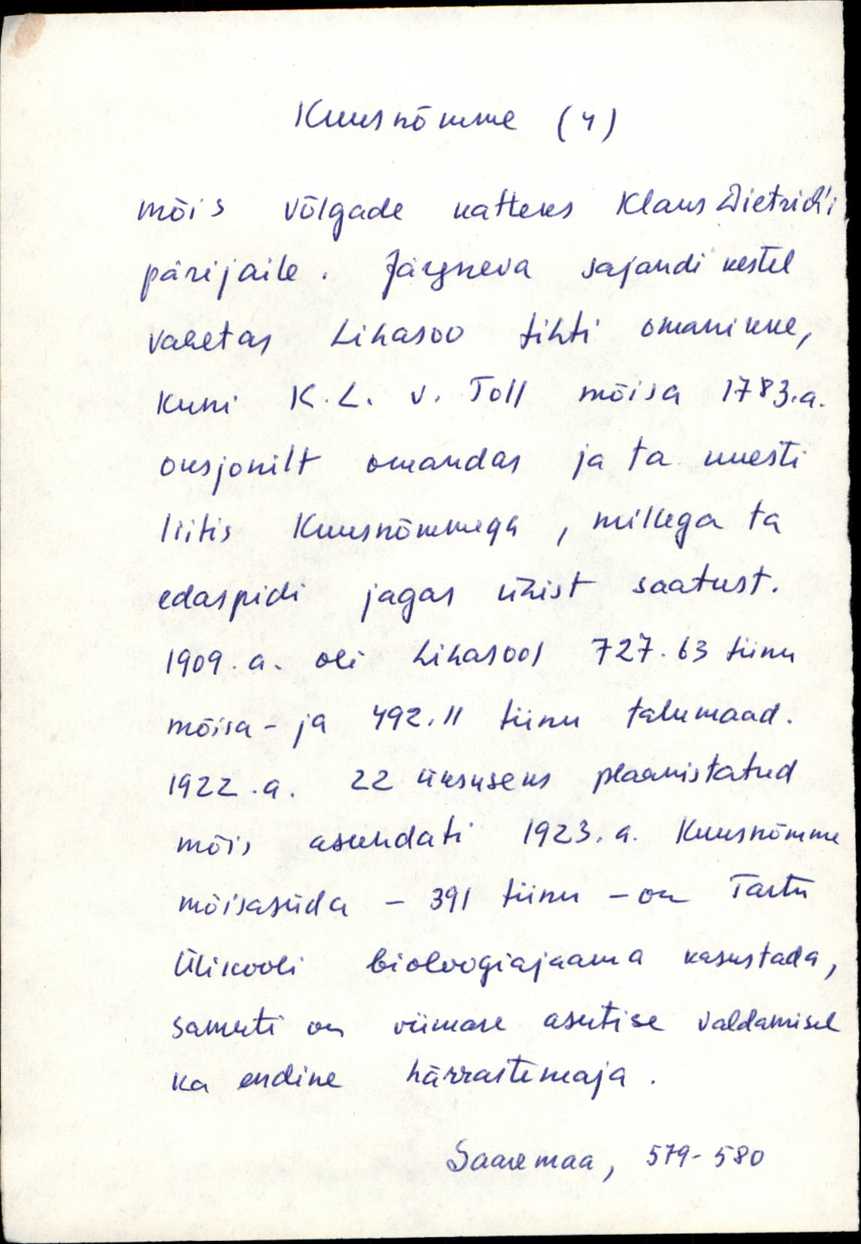 Kuusnõmme (4)
mõis võlgade katteks Klaus Dietrich'i
pärijaile. Järgneva sajandi kestel
vahetas Lihasoo tihti omanikke,
kuni K. L. v. Toll mõisa 1783.a.
oksjonilt omandas ja ta uuesti
liitis Kuusnõmmega, millega ta
edaspidi jagas ühist saatust.
1909.a. oli Lihasool 727.63 tiinu
mõisa- ja 492.11 tiinu talumaad.
1922.a. 22 üksuseks plaanistatud
mõis asundati 1923.a. Kuusnõmme
mõisasüda – 391 tiinu – on Tartu
Ülikooli bioloogiajaama kasustada,
samuti on viimase asutise valdamisel
ka endine härrastemaja.
Saaremaa, 579-580